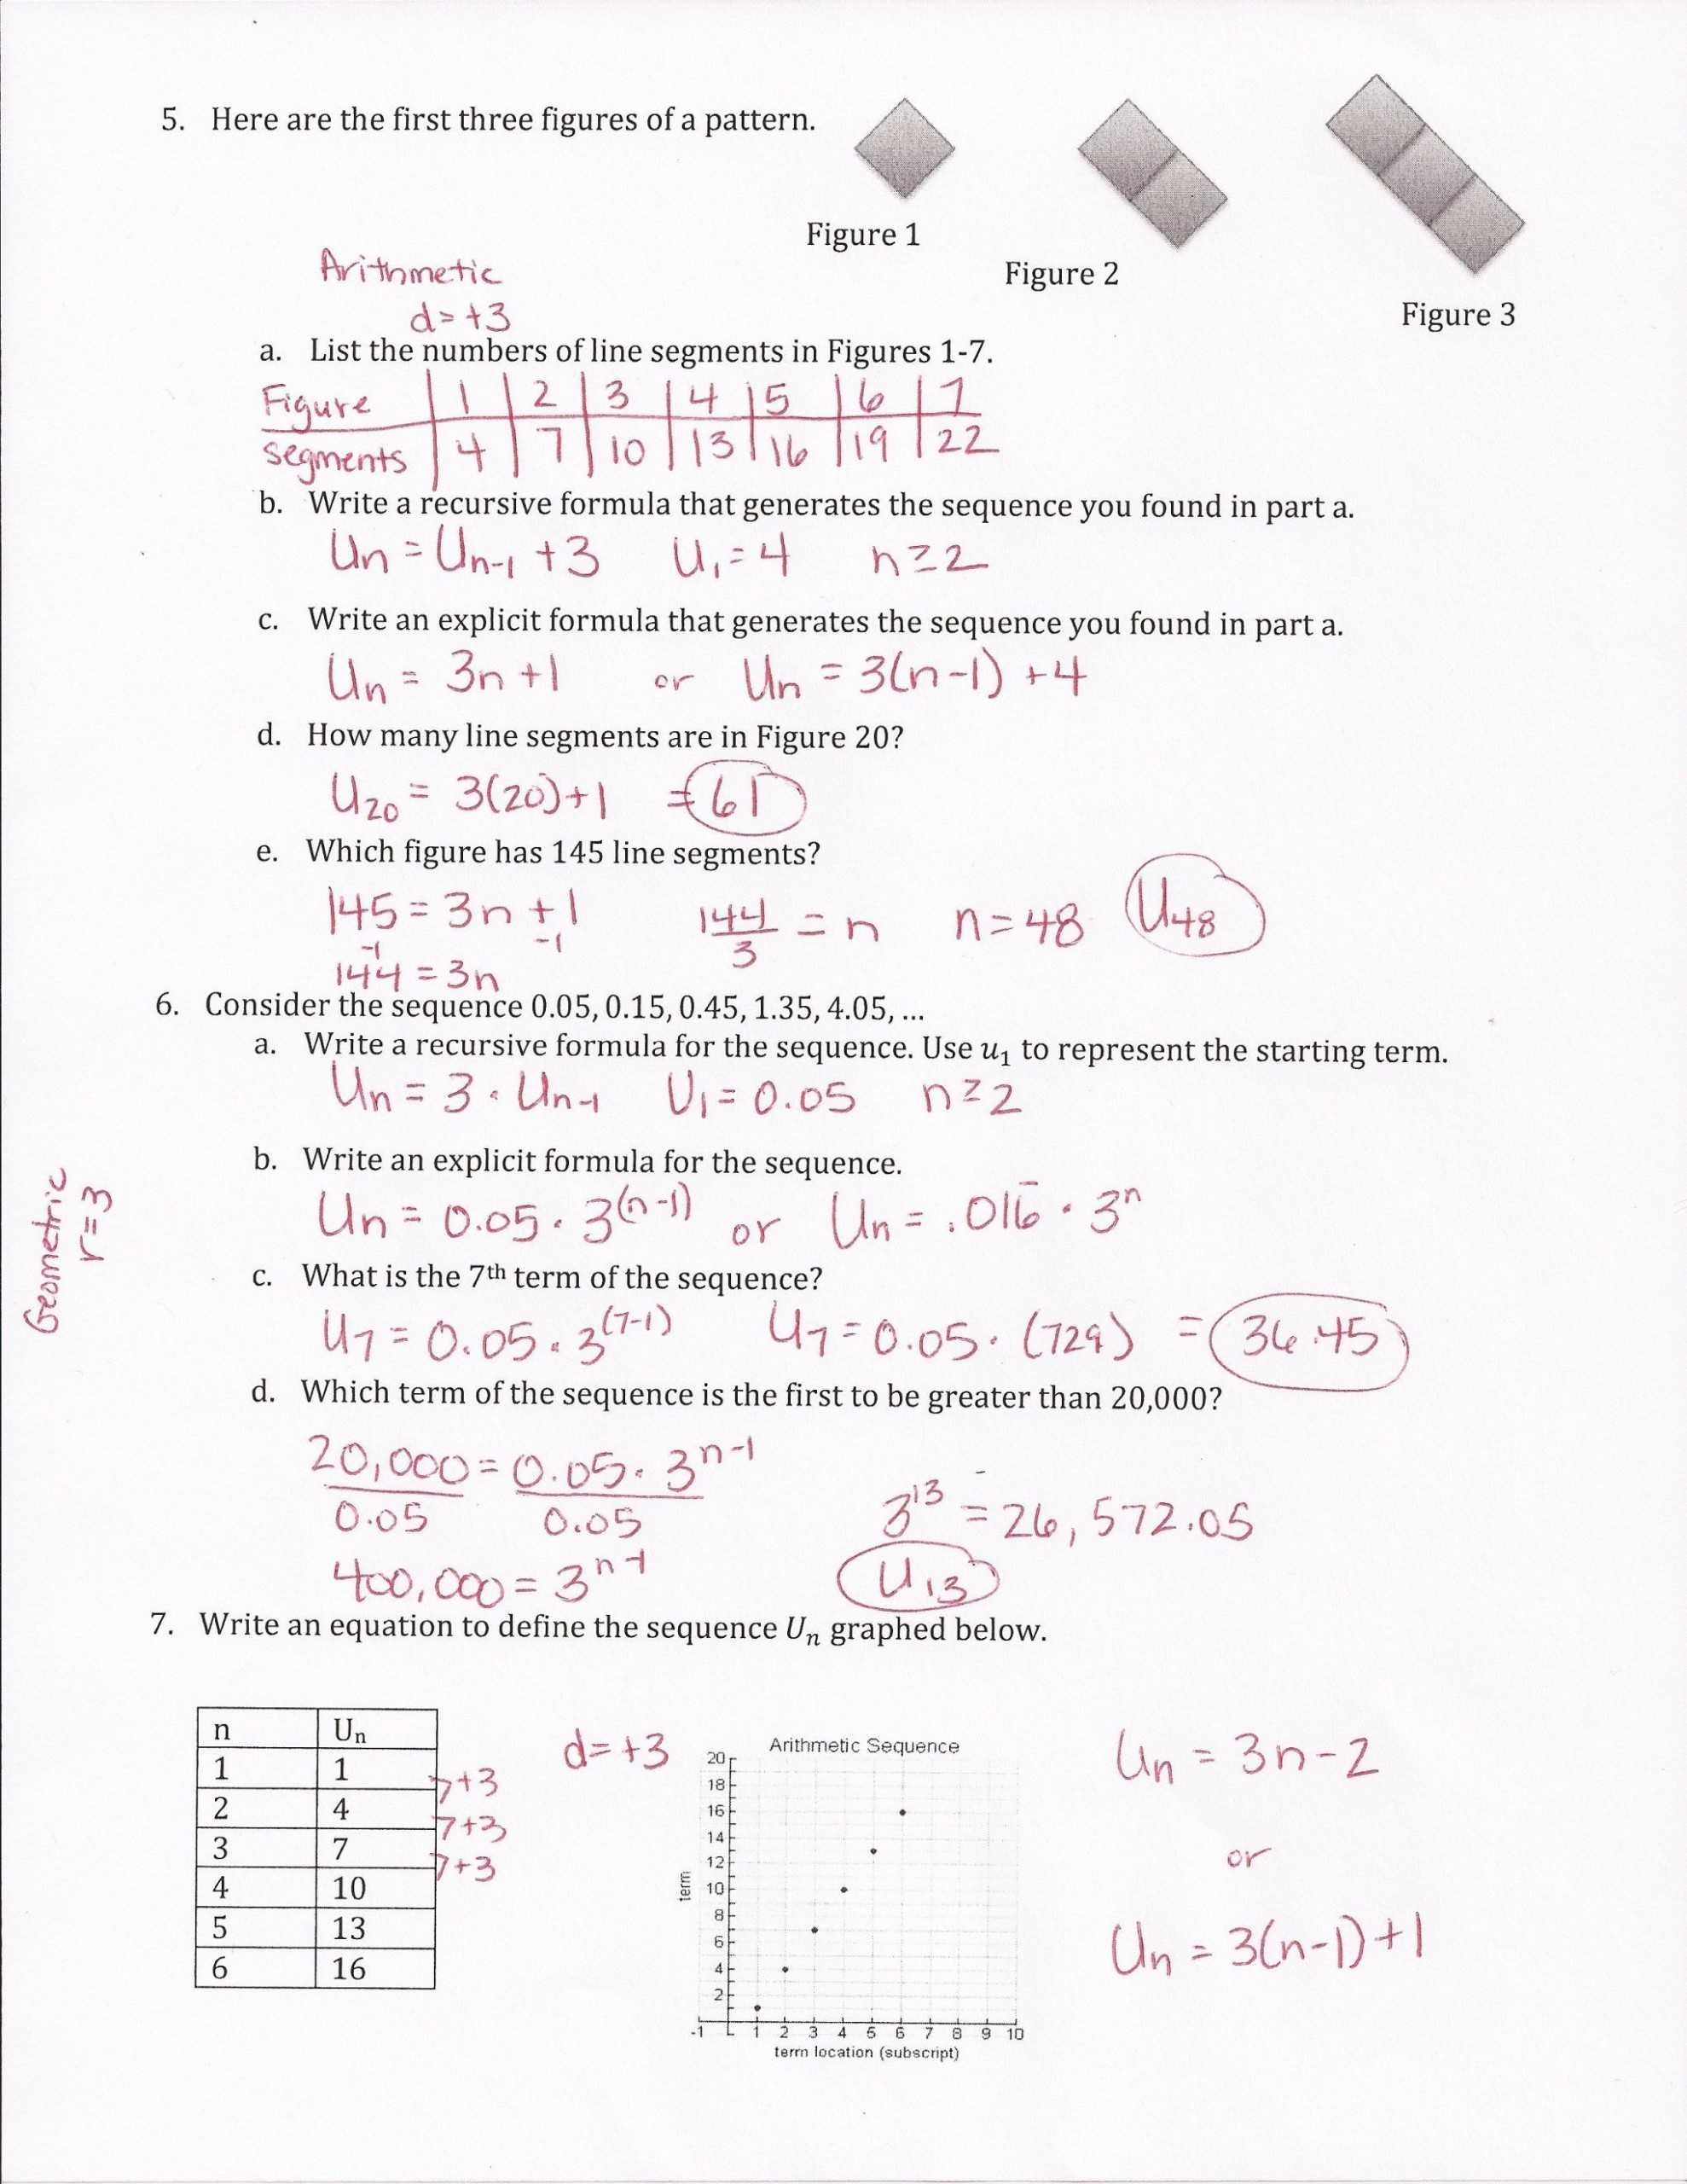 5. Here are the first three figures of a pattern.
Figure 1
Figure 2
Figure 3
Arithmetic
d=+3
a. List the numbers of line segments in Figures 1-7.
Figure | 1 | 2 | 3 | 4 | 5 | 6 | 7
segments | 4 | 7 | 10 | 13 | 16 | 19 | 22
b. Write a recursive formula that generates the sequence you found in part a.
Un = Un-1 +3 U1=4 n≥2
c. Write an explicit formula that generates the sequence you found in part a.
Un = 3n+1 or Un = 3(n-1) +4
d. How many line segments are in Figure 20?
U20 = 3(20)+1 = 61
e. Which figure has 145 line segments?
145 = 3n + 1 144/3 = n n=48 U48
-1 -1
144 = 3n
6. Consider the sequence 0.05, 0.15, 0.45, 1.35, 4.05, ...
a. Write a recursive formula for the sequence. Use u1 to represent the starting term.
Un = 3 · Un-1 U1 = 0.05 n≥2
Geometric
r=3
b. Write an explicit formula for the sequence.
Un = 0.05 · 3^(n-1) or Un = .016̅ · 3^n
c. What is the 7th term of the sequence?
U7 = 0.05 · 3^(7-1) U7 = 0.05 · (729) = 36.45
d. Which term of the sequence is the first to be greater than 20,000?
20,000 = 0.05 · 3^n-1
0.05 0.05
3^13 = 26,572.05
400,000 = 3^n-1 U13
7. Write an equation to define the sequence Un graphed below.
n Un
1 1
2 4
3 7
4 10
5 13
6 16
+3
+3
+3
d=+3
Arithmetic Sequence
20
18
16
14
12
10
8
6
4
2
term
-1 1 2 3 4 5 6 7 8 9 10
term location (subscript)
Un = 3n-2
or
Un = 3(n-1)+1